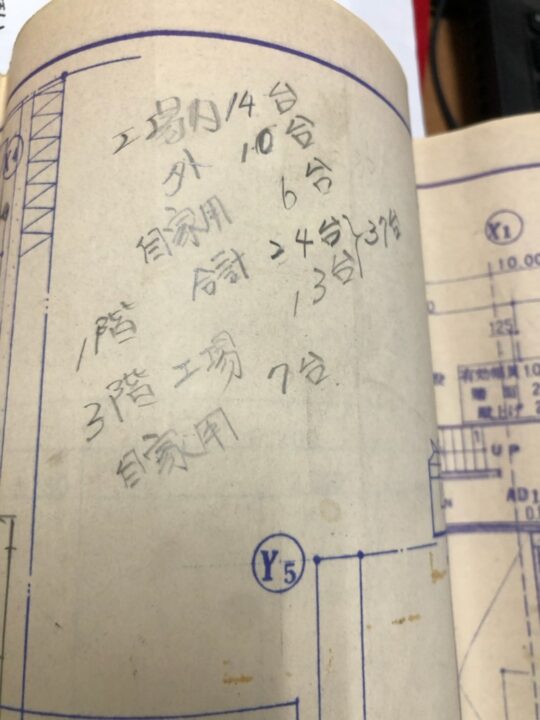 工場内 14台
外 10台
自家用 6台
1階 合計 24台 37台
3階 工場 13台
自家用 7台
Y5
X1
10.00
125
有効幅員 10
踏面 2
蹴上げ 2
UP
AD1